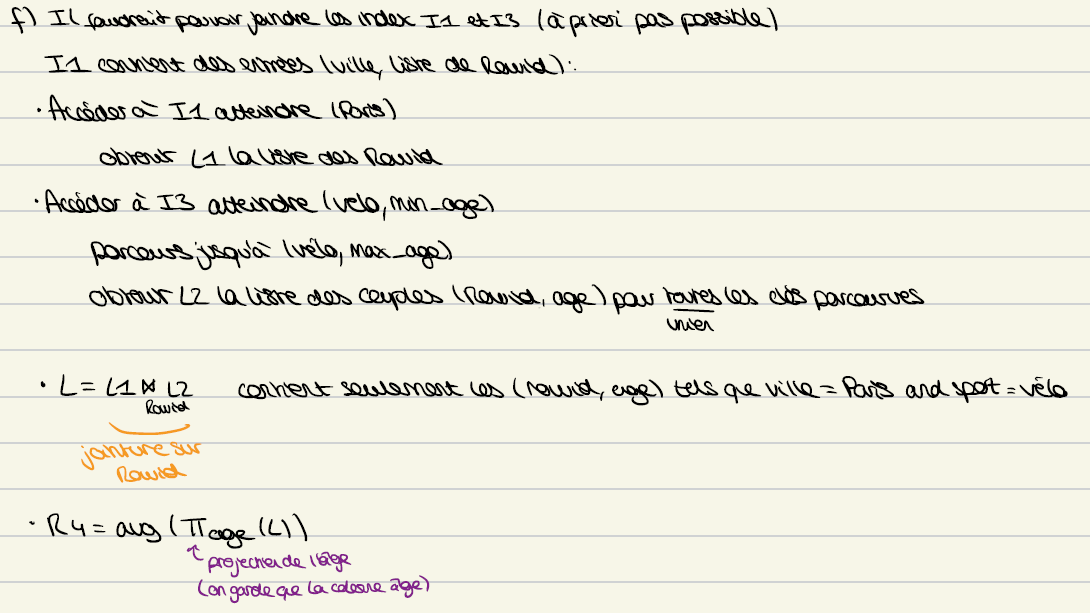 f) Il faudrait pouvoir joindre les index I1 et I3 (à priori pas possible)
I1 contient des entrées (ville, liste de Rowid):
· Accéder à I1 atteindre (Paris)
obtenir L1 la liste des Rowid
· Accéder à I3 atteindre (vélo, min_age)
parcours jusqu'à (vélo, max_age)
obtenir L2 la liste des couples (Rowid, age) pour toutes les clés parcourues
unier
· L = L1 ⋈ L2 contient seulement les (rowid, age) tels que ville = Paris and sport = vélo
Rowid
jointure sur
Rowid
· R4 = avg (π age (L))
↑ projection de l'âge
(on garde que la colonne âge)